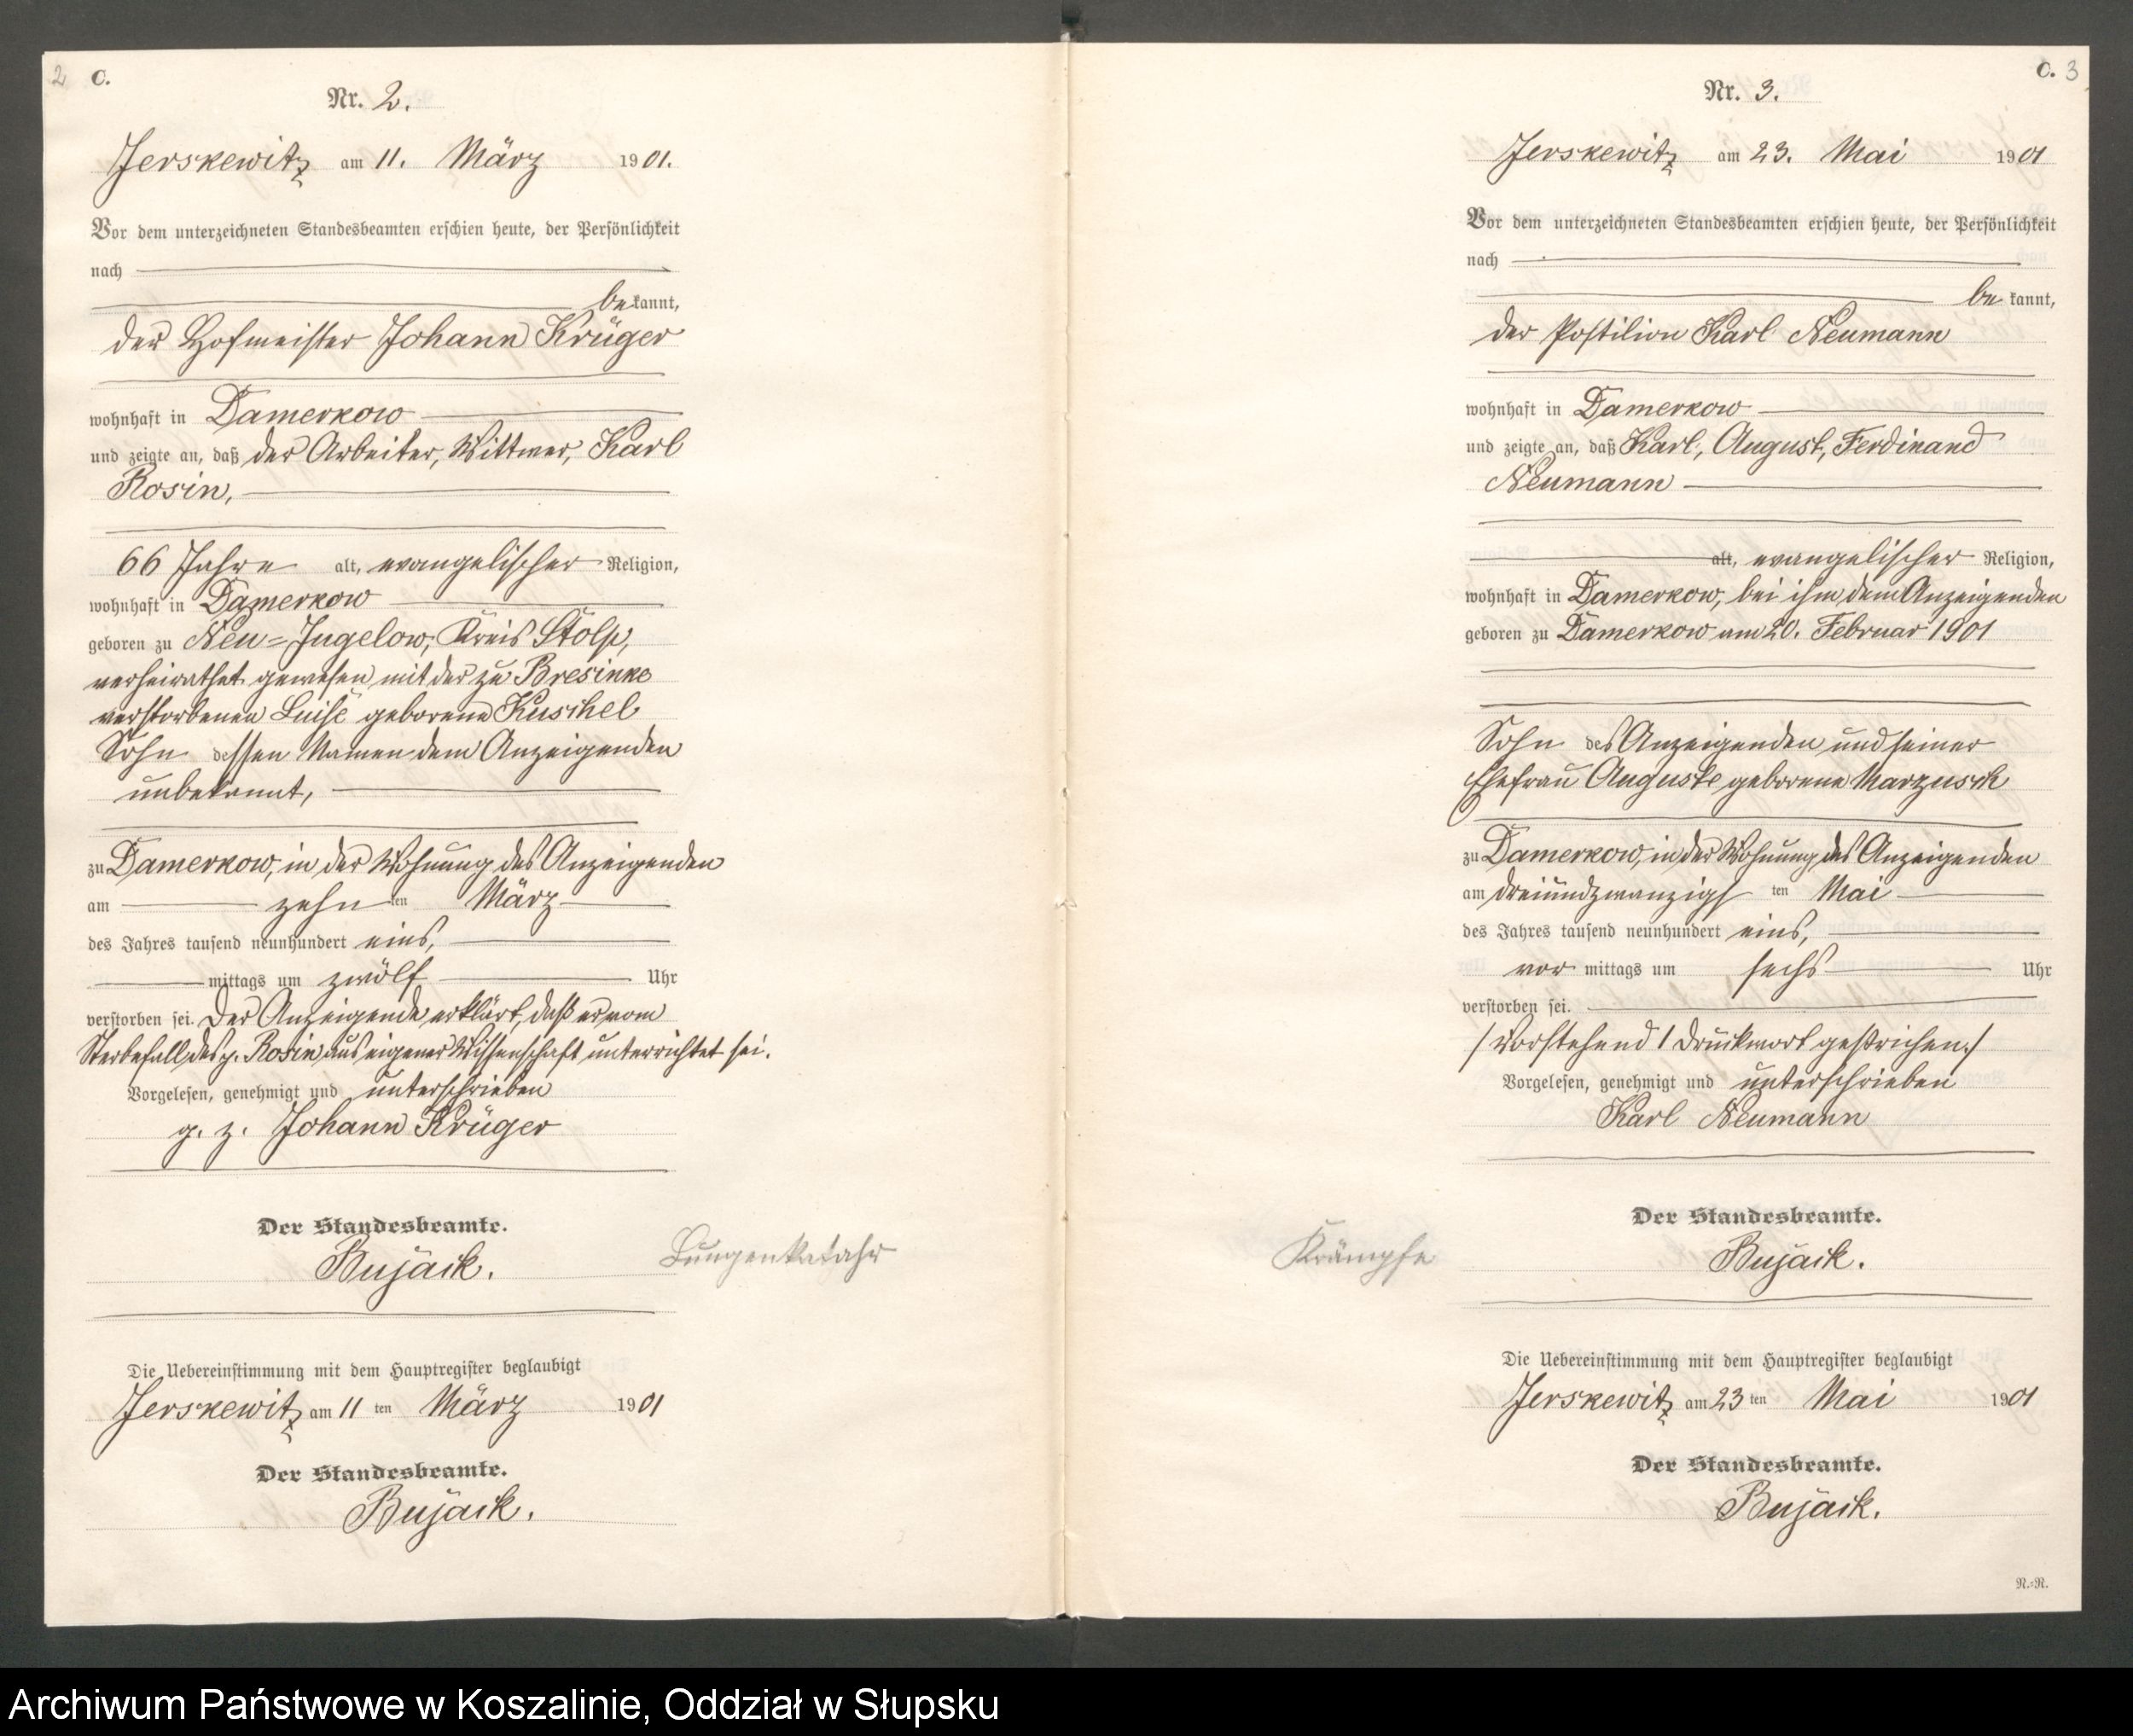 2 C.
Nr. 2.
Jerskewitz am 11. März 1901.
Vor dem unterzeichneten Standesbeamten erschien heute, der Persönlichkeit
nach
bekannt,
der Hofmeister Johann Krüger
wohnhaft in Damerkow
und zeigte an, daß der Arbeiter, Wittwer, Karl
Rosin,
66 Jahre alt, evangelischer Religion,
wohnhaft in Damerkow
geboren zu Neu=Jugelow, Kreis Stolp,
verheirathet gewesen mit der zu Bresinke
verstorbenen Luise geborene Kuschel
Sohn dessen Namen dem Anzeigenden
unbekannt,
zu Damerkow, in der Wohnung des Anzeigenden
am zehnten März
des Jahres tausend neunhundert eins,
mittags um zwölf Uhr
verstorben sei. Der Anzeigende erklärt, daß er vom
Sterbefall des p. Rosin aus eigener Wissenschaft unterrichtet sei.
Vorgelesen, genehmigt und unterschrieben
g. z. Johann Krüger
Der Standesbeamte.
Bujack.
Lungenkatahr
Die Uebereinstimmung mit dem Hauptregister beglaubigt
Jerskewitz am 11 ten März 1901
Der Standesbeamte.
Bujack.
C. 3
Nr. 3.
Jerskewitz am 23. Mai 1901
Vor dem unterzeichneten Standesbeamten erschien heute, der Persönlichkeit
nach
bekannt,
der Postilion Karl Neumann
wohnhaft in Damerkow
und zeigte an, daß Karl, August, Ferdinand
Neumann
alt, evangelischer Religion,
wohnhaft in Damerkow, bei ihm dem Anzeigenden
geboren zu Damerkow am 20. Februar 1901
Sohn des Anzeigenden und seiner
Ehefrau Auguste geborene Marzusch
zu Damerkow, in der Wohnung des Anzeigenden
am dreiundzwanzigsten Mai
des Jahres tausend neunhundert eins,
vor mittags um sechs Uhr
verstorben sei.
/Vorstehend 1 Druckwort gestrichen./
Vorgelesen, genehmigt und unterschrieben
Karl Neumann
Der Standesbeamte.
Krämpfe
Bujack.
Die Uebereinstimmung mit dem Hauptregister beglaubigt
Jerskewitz am 23 ten Mai 1901
Der Standesbeamte.
Bujack.
N.=N.
Archiwum Państwowe w Koszalinie, Oddział w Słupsku